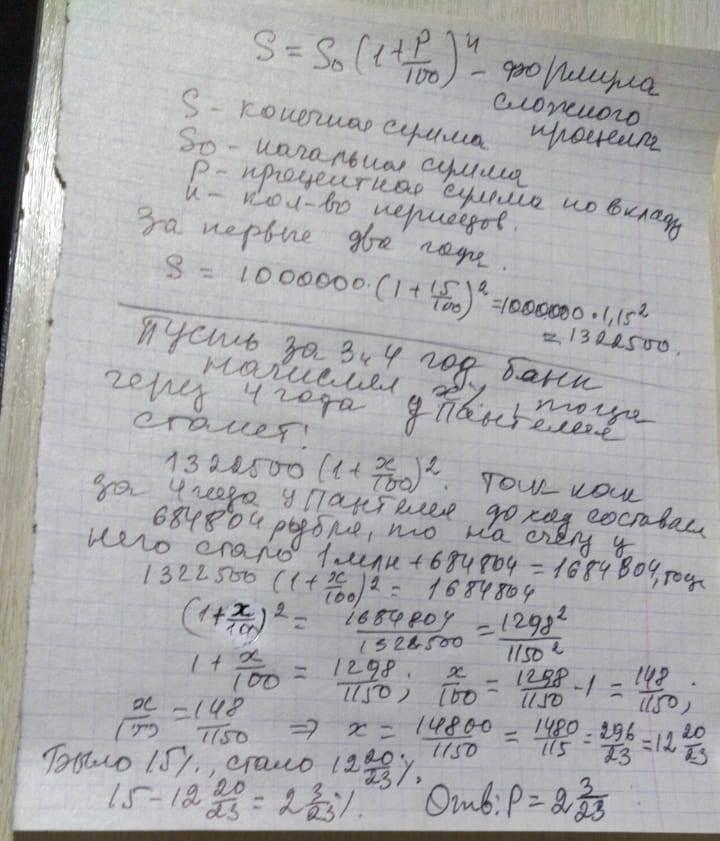 S = S₀ (1 + P/100)ⁿ - формула
сложного
процента
S - конечная сумма
S₀ - начальная сумма
P - процентная сумма по вкладу
n - кол-во периодов.
За первые два года.
S = 1000000·(1+15/100)² = 1000000·1,15²
= 1322500.
Пусть за 3 и 4 год банк
начислял x%, тогда
через 4 года у Пантелея
станет:
1322500 (1+x/100)². Так как
за 4 года у Пантелея доход составил
684804 рубля, то на счету у
него стало 1 млн + 684804 = 1684804, тогда
1322500 (1+x/100)² = 1684804
(1+x/100)² = 1684804/1322500 = 1298²/1150²
1 + x/100 = 1298/1150; x/100 = 1298/1150 - 1 = 148/1150;
x/100 = 148/1150 ⇒ x = 14800/1150 = 1480/115 = 296/23 = 12 20/23
Было 15%, стало 12 20/23 %.
15 - 12 20/23 = 2 3/23 %. Отв: P = 2 3/23